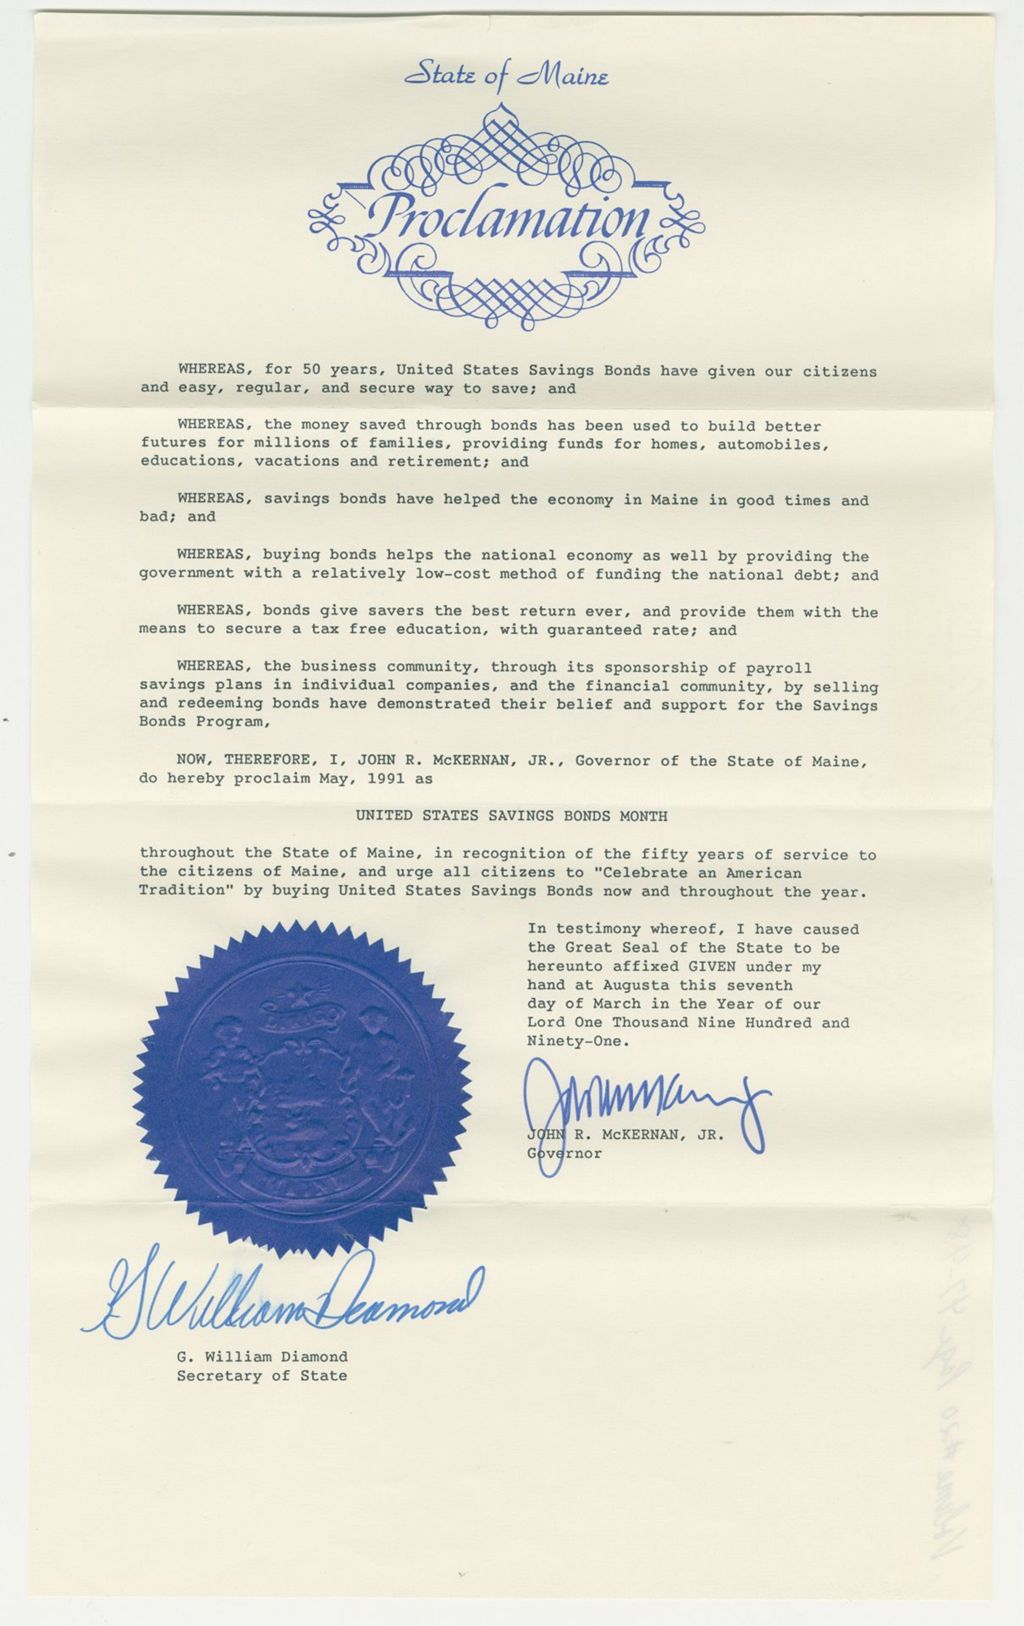 State of Maine
Proclamation
WHEREAS, for 50 years, United States Savings Bonds have given our citizens
and easy, regular, and secure way to save; and
WHEREAS, the money saved through bonds has been used to build better
futures for millions of families, providing funds for homes, automobiles,
educations, vacations and retirement; and
WHEREAS, savings bonds have helped the economy in Maine in good times and
bad; and
WHEREAS, buying bonds helps the national economy as well by providing the
government with a relatively low-cost method of funding the national debt; and
WHEREAS, bonds give savers the best return ever, and provide them with the
means to secure a tax free education, with guaranteed rate; and
WHEREAS, the business community, through its sponsorship of payroll
savings plans in individual companies, and the financial community, by selling
and redeeming bonds have demonstrated their belief and support for the Savings
Bonds Program,
NOW, THEREFORE, I, JOHN R. McKERNAN, JR., Governor of the State of Maine,
do hereby proclaim May, 1991 as
UNITED STATES SAVINGS BONDS MONTH
throughout the State of Maine, in recognition of the fifty years of service to
the citizens of Maine, and urge all citizens to "Celebrate an American
Tradition" by buying United States Savings Bonds now and throughout the year.
In testimony whereof, I have caused
the Great Seal of the State to be
hereunto affixed GIVEN under my
hand at Augusta this seventh
day of March in the Year of our
Lord One Thousand Nine Hundred and
Ninety-One.
JOHN R. McKERNAN, JR.
Governor
MAINE
G William Diamond
G. William Diamond
Secretary of State